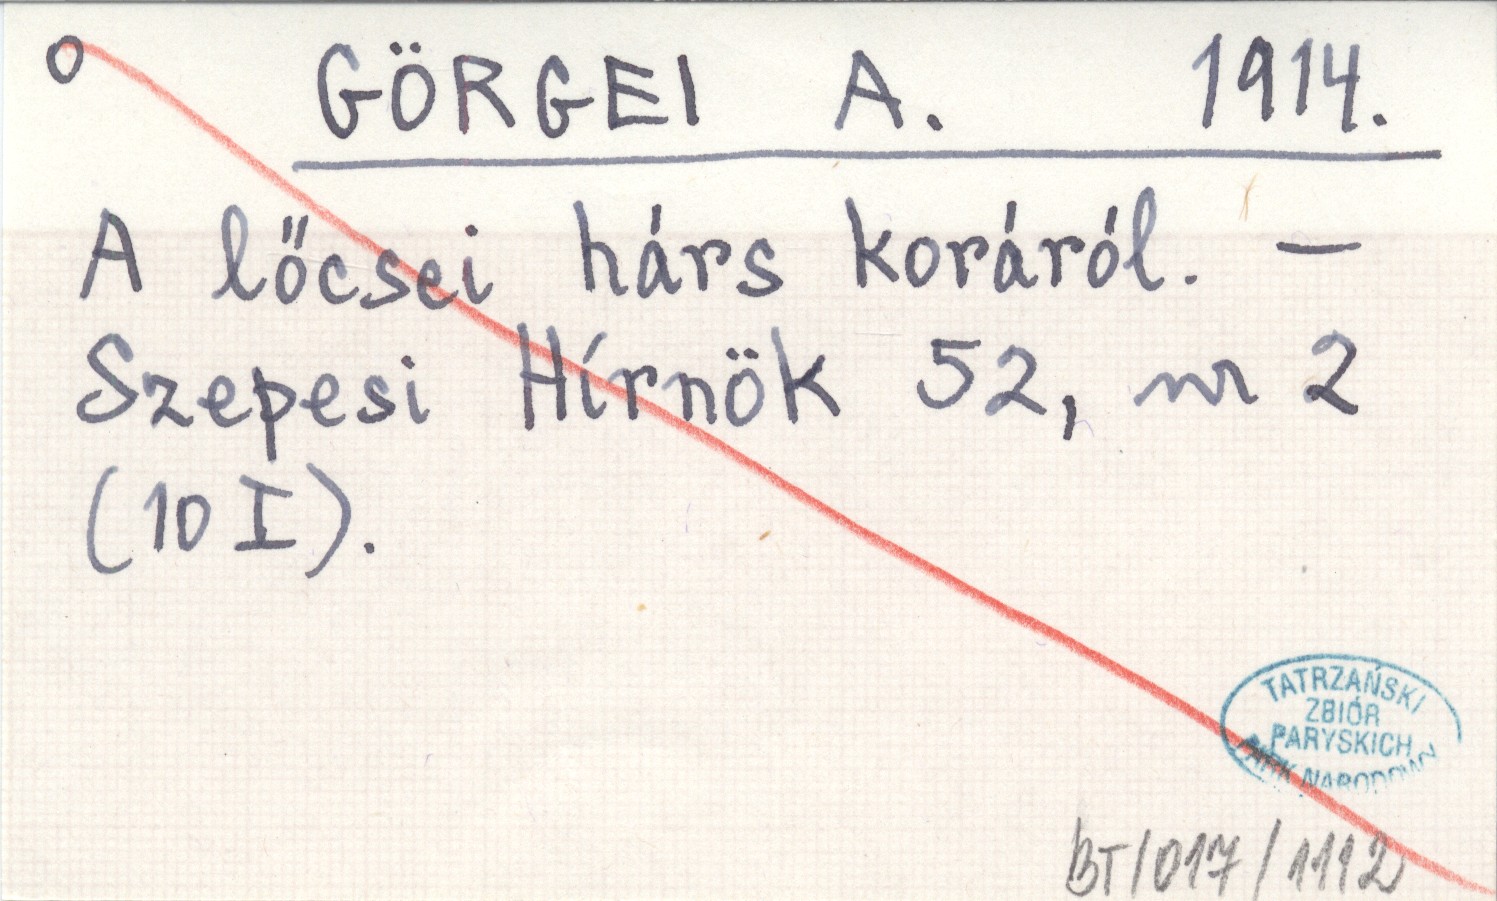 o GÖRGEI A. 1914.
A lőcsei hárs koráról. —
Szepesi Hírnök 52, nr 2
(10 I).
TATRZAŃSKI
ZBIÓR
PARYSKICH
PARK NARODOWY
BT/017/1112